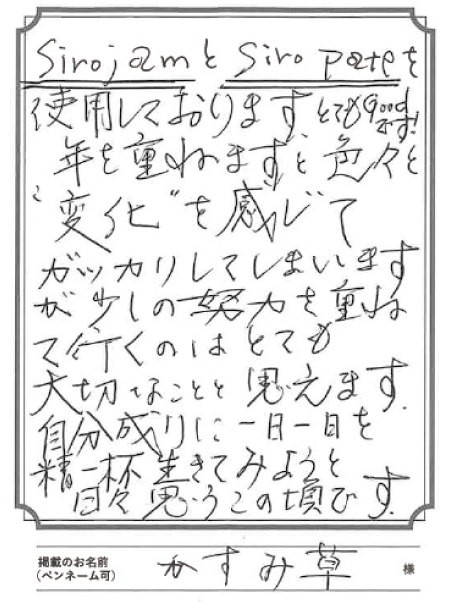 Sirojamと Siro pateを
使用しております、とてもgoodです!
年を重ねますと、色々と
"変化"を感じて
ガッカリしてしまいます
が少しの努力を重ね
て行くのはとても
大切なことと思えます.
自分成りに一日一日を
精一杯生きてみようと
日々思うこの頃です.
掲載のお名前
(ペンネーム可)
かすみ草
様